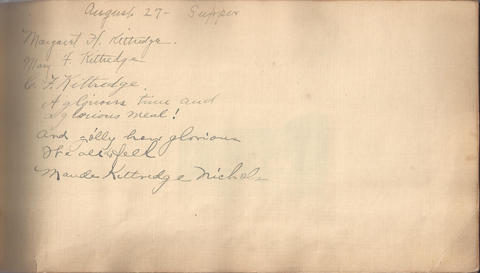 August 27 - Supper
Margaret H. Kittredge.
Mary F. Kittredge
C. F. Kittredge.
A glorious time and
a glorious meal!
And jolly how glorious
we all
Maude Kittredge Nichols